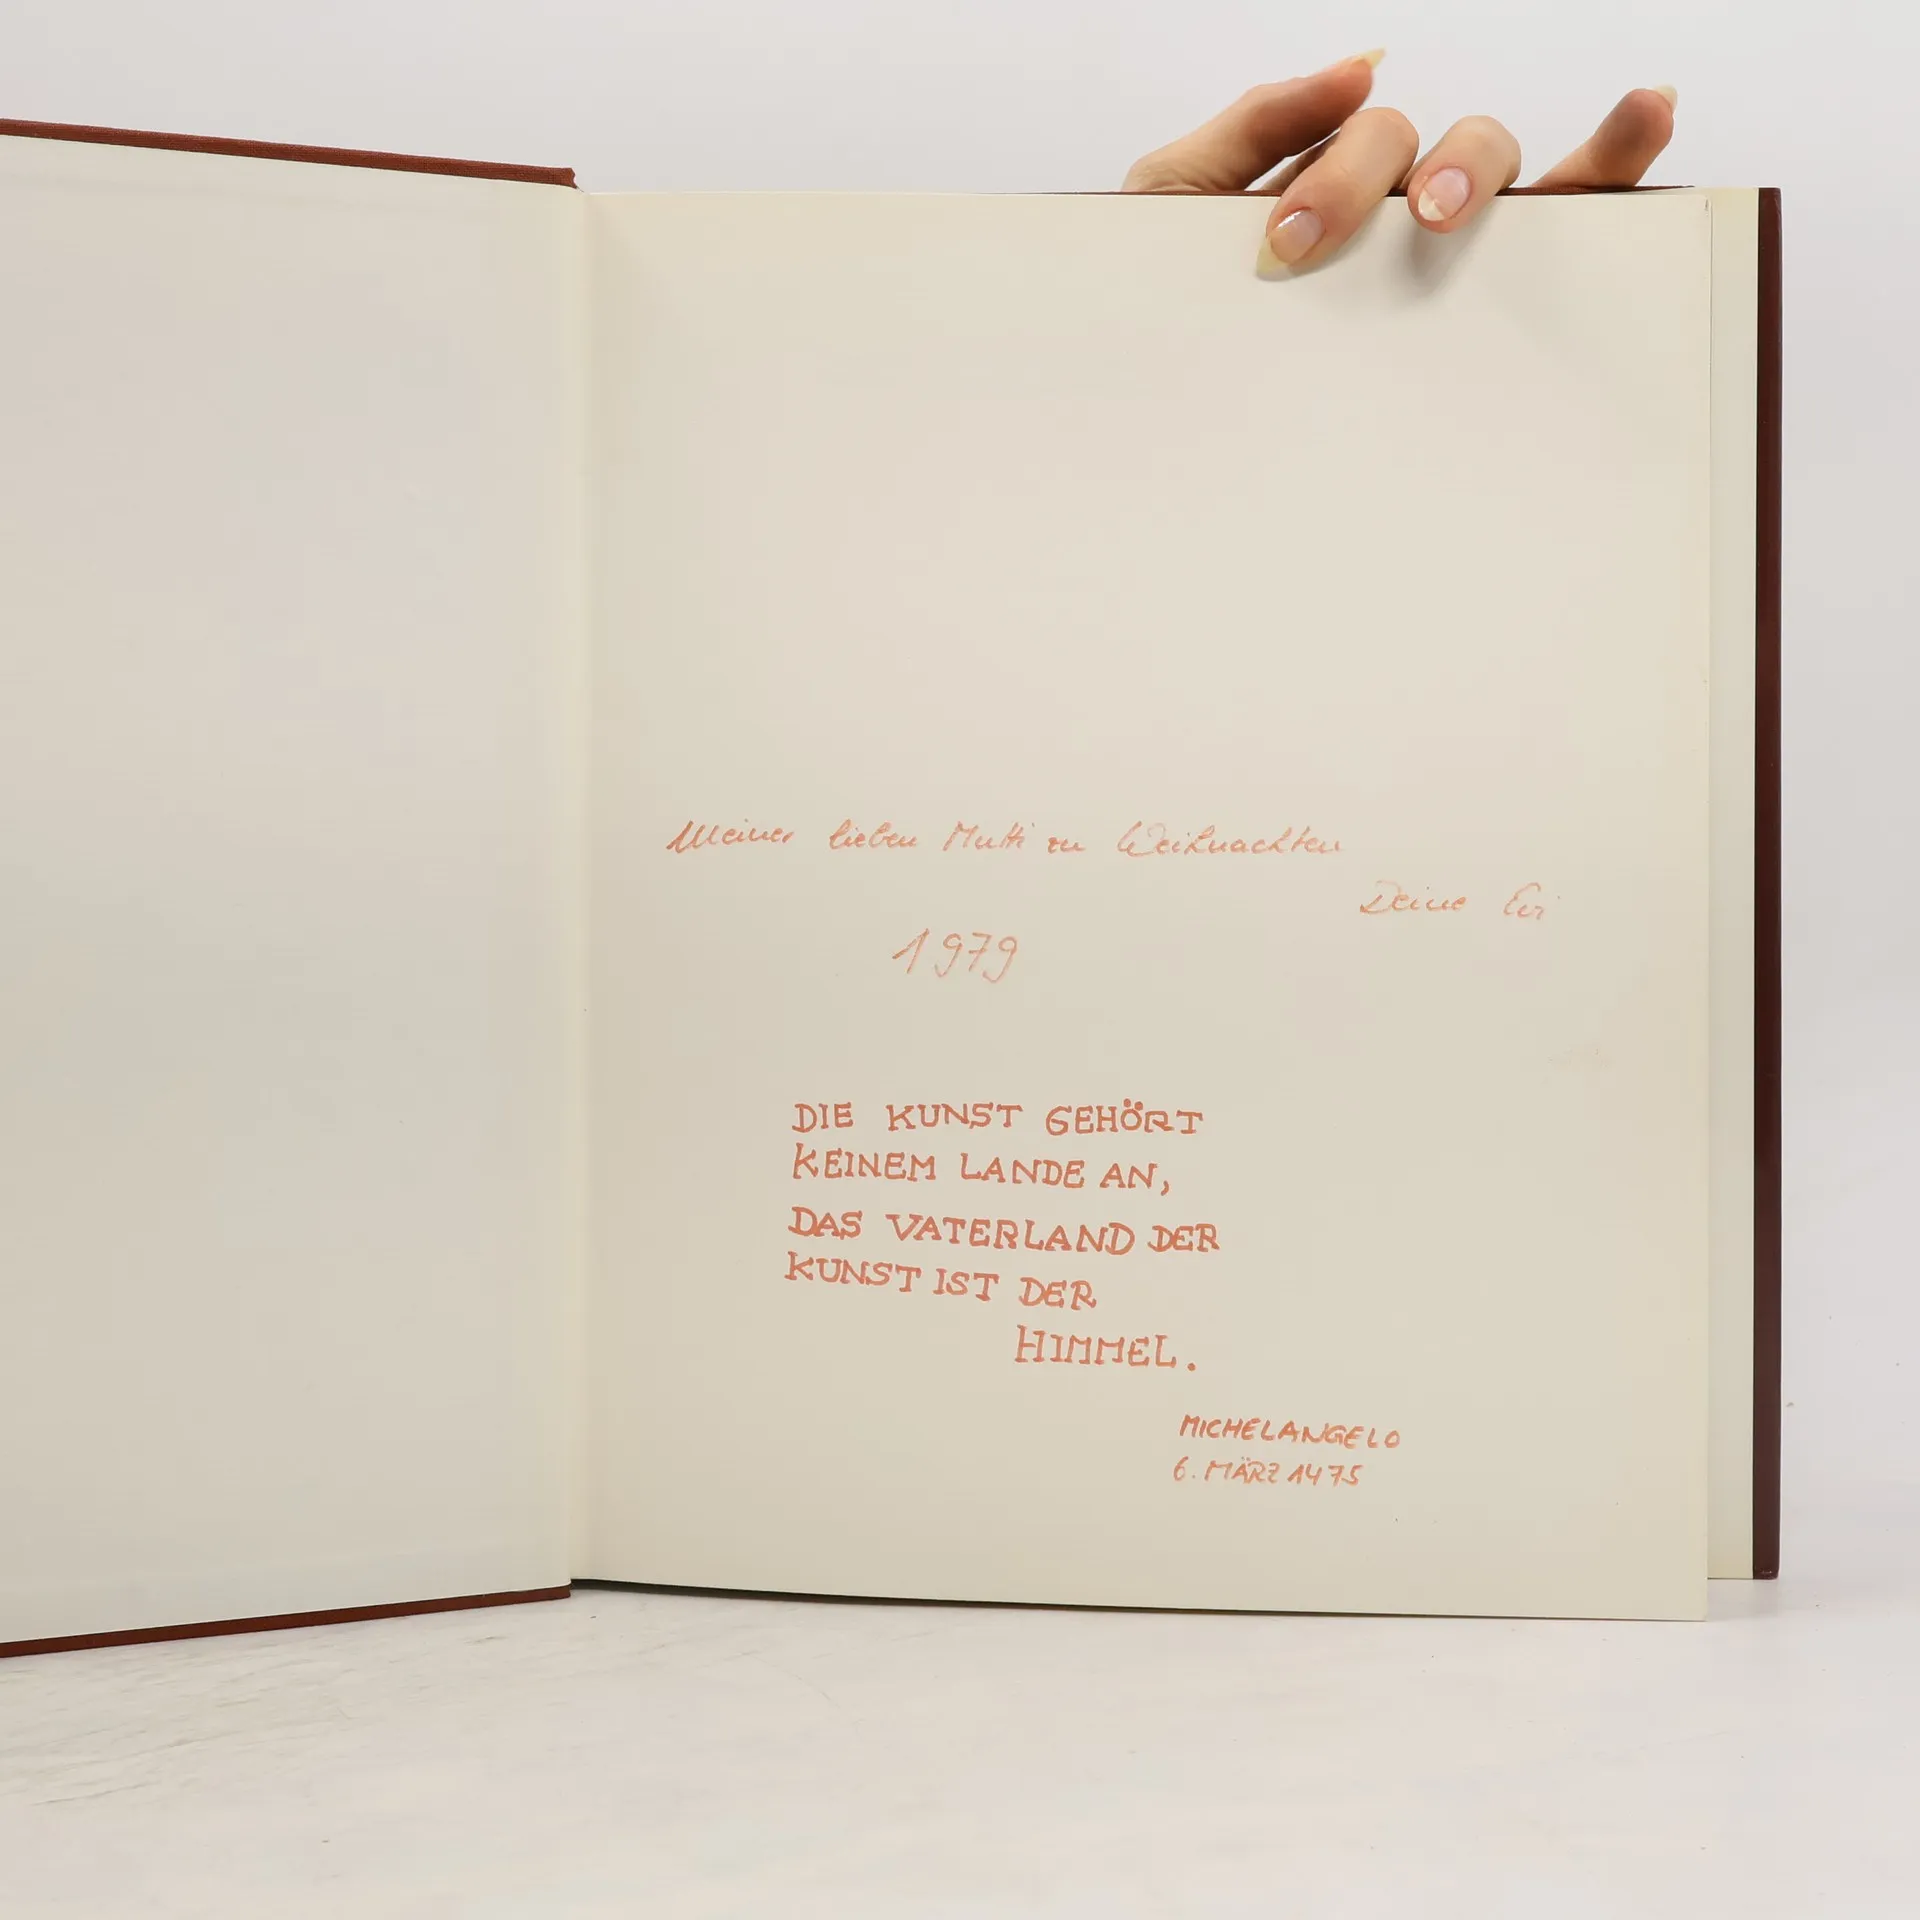 Meiner lieben Mutti zu Weihnachten
Deine Evi
1979
DIE KUNST GEHÖRT
KEINEM LANDE AN,
DAS VATERLAND DER
KUNST IST DER
HIMMEL.
MICHELANGELO
6. MÄRZ 1475